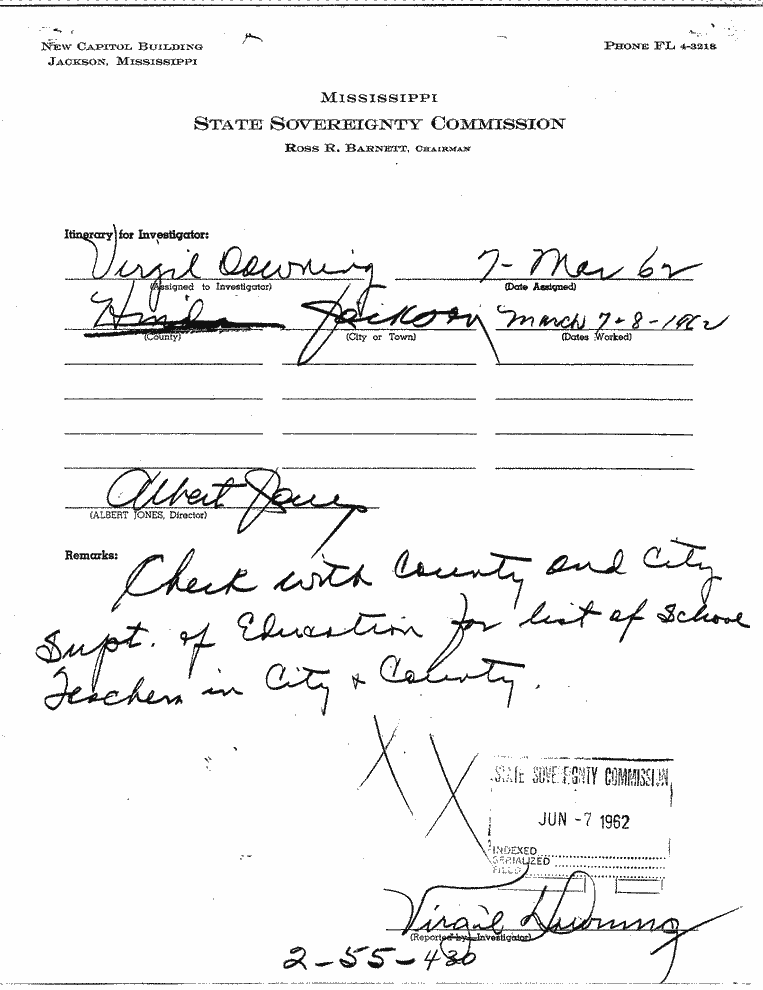 NEW CAPITOL BUILDING
JACKSON, MISSISSIPPI
PHONE FL 4-3218
MISSISSIPPI
STATE SOVEREIGNTY COMMISSION
ROSS R. BARNETT, CHAIRMAN
Itinerary for Investigator:
Virgil Downing 7- Mar 62
(Assigned to Investigator) (Date Assigned)
Hinds Jackson March 7-8-1962
(County) (City or Town) (Dates Worked)
Albert Jones
(ALBERT JONES, Director)
Remarks:
Check with County and City
Supt. of Education for list of School
Teachers in City & County.
STATE SOVEREIGNTY COMMISSION
JUN -7 1962
INDEXED
SERIALIZED
FILED
Virgil Downing
(Reported by - Investigator)
2-55-430